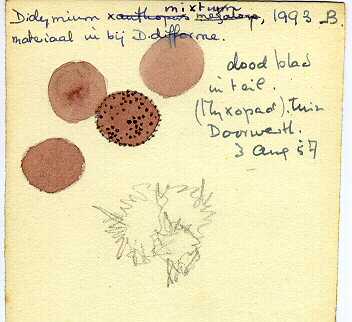 mixtum
Didymium xanthopus megalosp., 1993 B.
materiaal in bij D. difforme.
dood blad
in teil.
(Myxopad). tuin
Doorwerth.
3 Aug 57